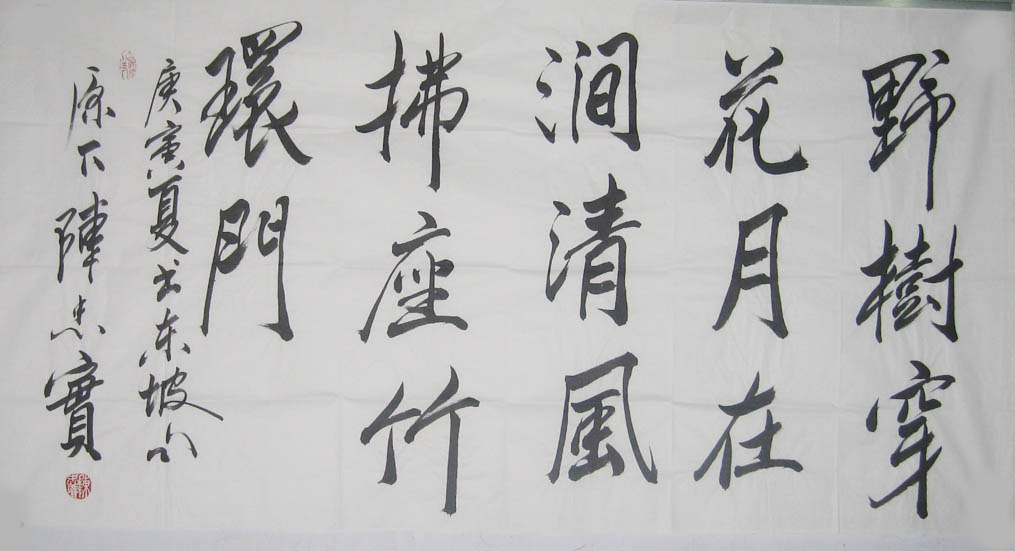 野樹穿
花月在
澗清風
拂座竹
環門
庚寅夏书东坡句
原下陳忠實